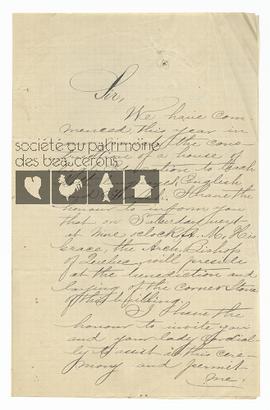 Sir,
We have com-
menced this year in
the cons-
of a house
to teach
société du patrimoine
des beaucerons
English
I have the
honour to inform you
that on Saturday next
at nine o'clock A. M. His
Grace, the Arch. Bishop
of Quebec, will preside
at the benediction and
laying of the corner Stone
of that building.
I have the
honour to invite you
and your lady cordial-
ly to assist at this cere-
mony and permit
me.